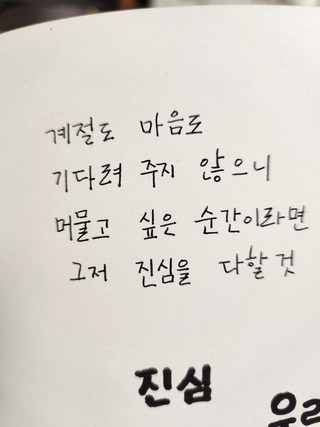 계절도 마음도
기다려 주지 않으니
머물고 싶은 순간이라면
그저 진심을 다할 것
진심